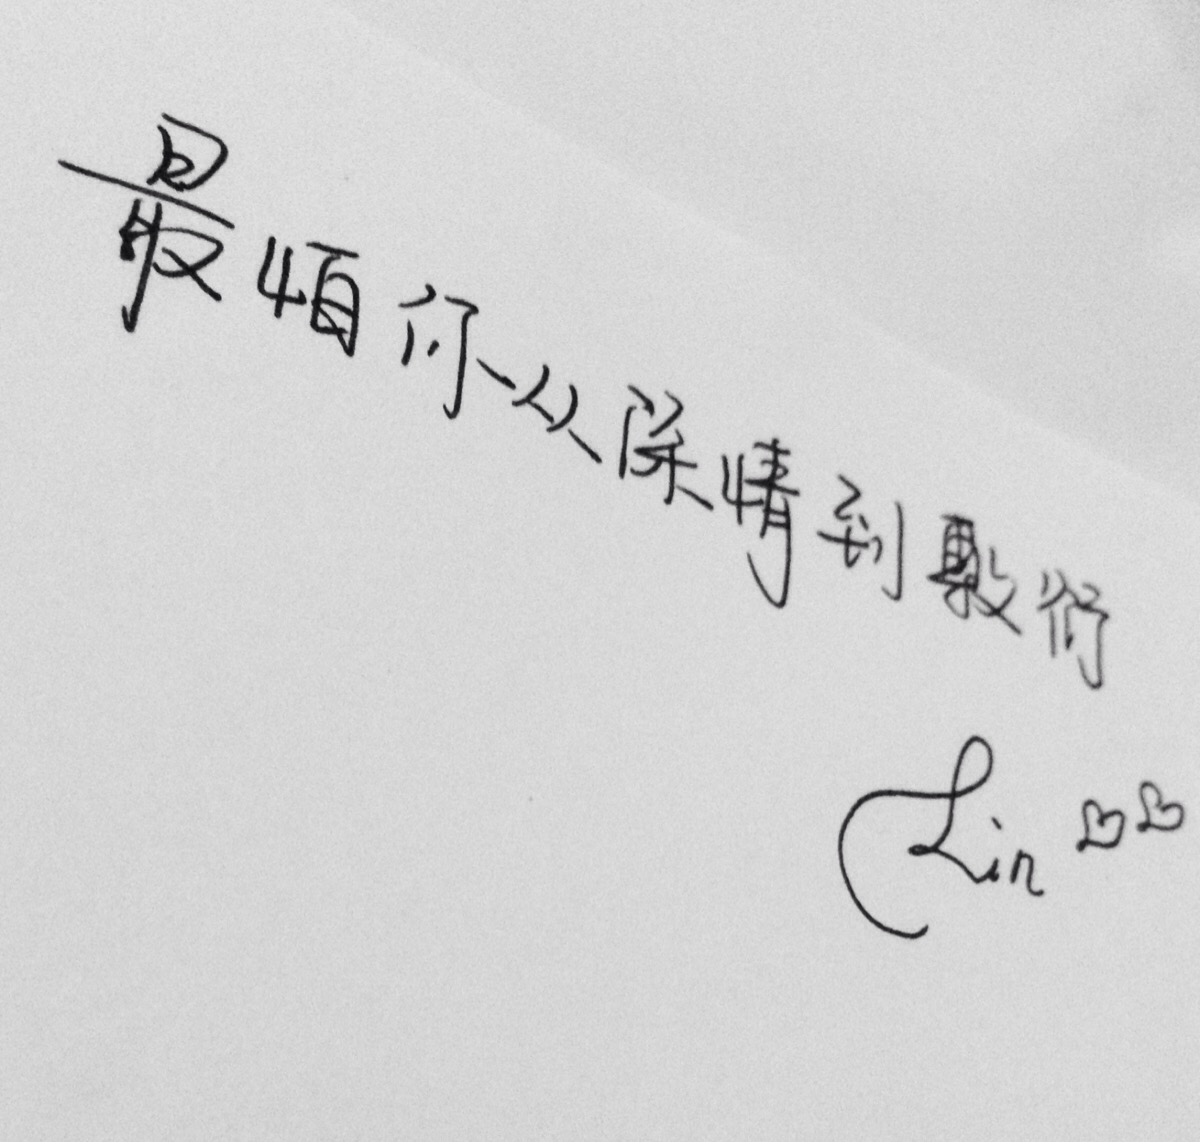 最怕你从深情到敷衍
Lin